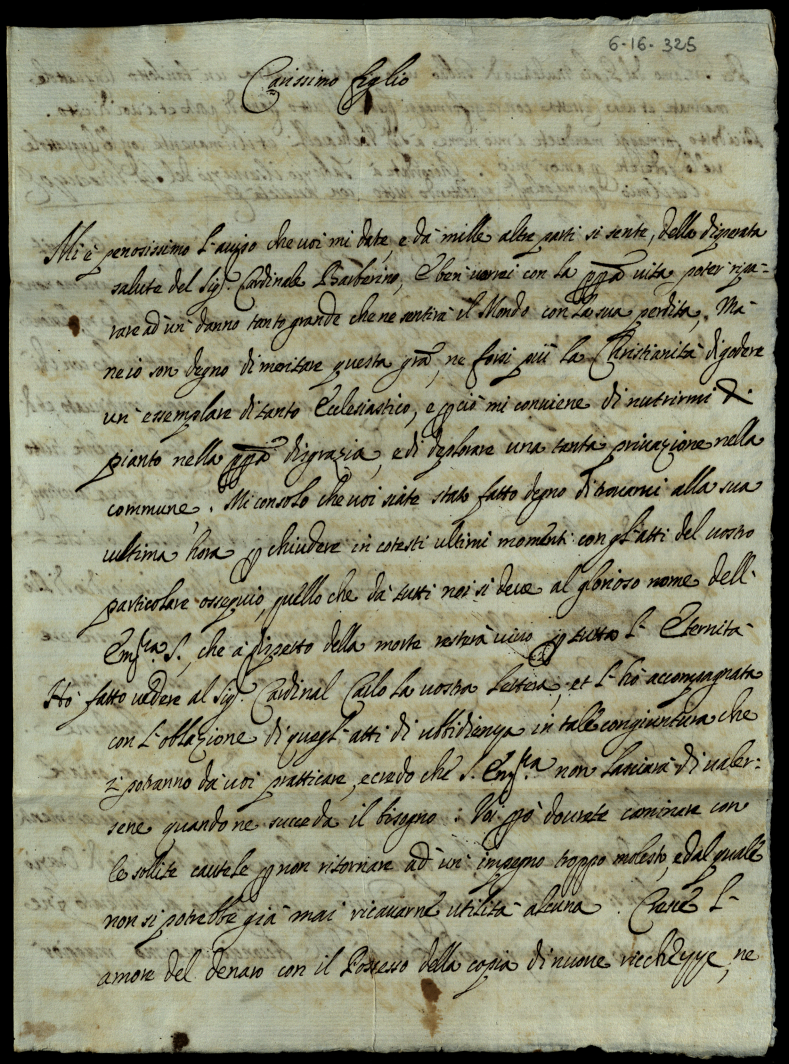 6-16-325
Carissimo figlio
Mi è penosissimo l'auiso che uoi mi date, e da mille altre parti si sente, della disperata
salute del Sig.r Cardinale Barberino, e ben uorrei con la ppã uita poter ripa-
rare ad un danno tanto grande che ne sentirà il Mondo con la sua perdita, Mà
ne io son degno di meritare questa grã, ne forsi più la Christianità di godere
un essemplare di tanto Ecclesiastico, e però mi conuiene di nutrirmi di
pianto nella ppã disgrazia, e di deplorare una tanta priuazione nella
commune. Mi consolo che uoi siate stato fatto degno di trouarui alla sua
ultima hora p chiudere in cotesti ultimi momenti con gl'atti del uostro
particolare ossequio, quello che da tutti noi si deue al glorioso nome dell'
Em.za S., che a dispetto della morte resterà uiuo p tutta l'Eternità
Hò fatto uedere al Sig.r Cardinal Carlo la uostra lettera, et l'hò accompagnata
con l'oblazione di quegl'atti di ubbidienza in tale congiuntura che
si potranno da uoi pratticare, e credo che S. Em.za non lasciarà di ualer-
sene quando ne succeda il bisogno: Voi pò dourete caminare con
le sollite cautele p non ritornare ad un impegno troppo molesto, e dal quale
non si potrebbe già mai ricauarne utilità alcuna. Cresce l'
amore del denaro con il Possesso della copia di nuoue ricchezze, ne